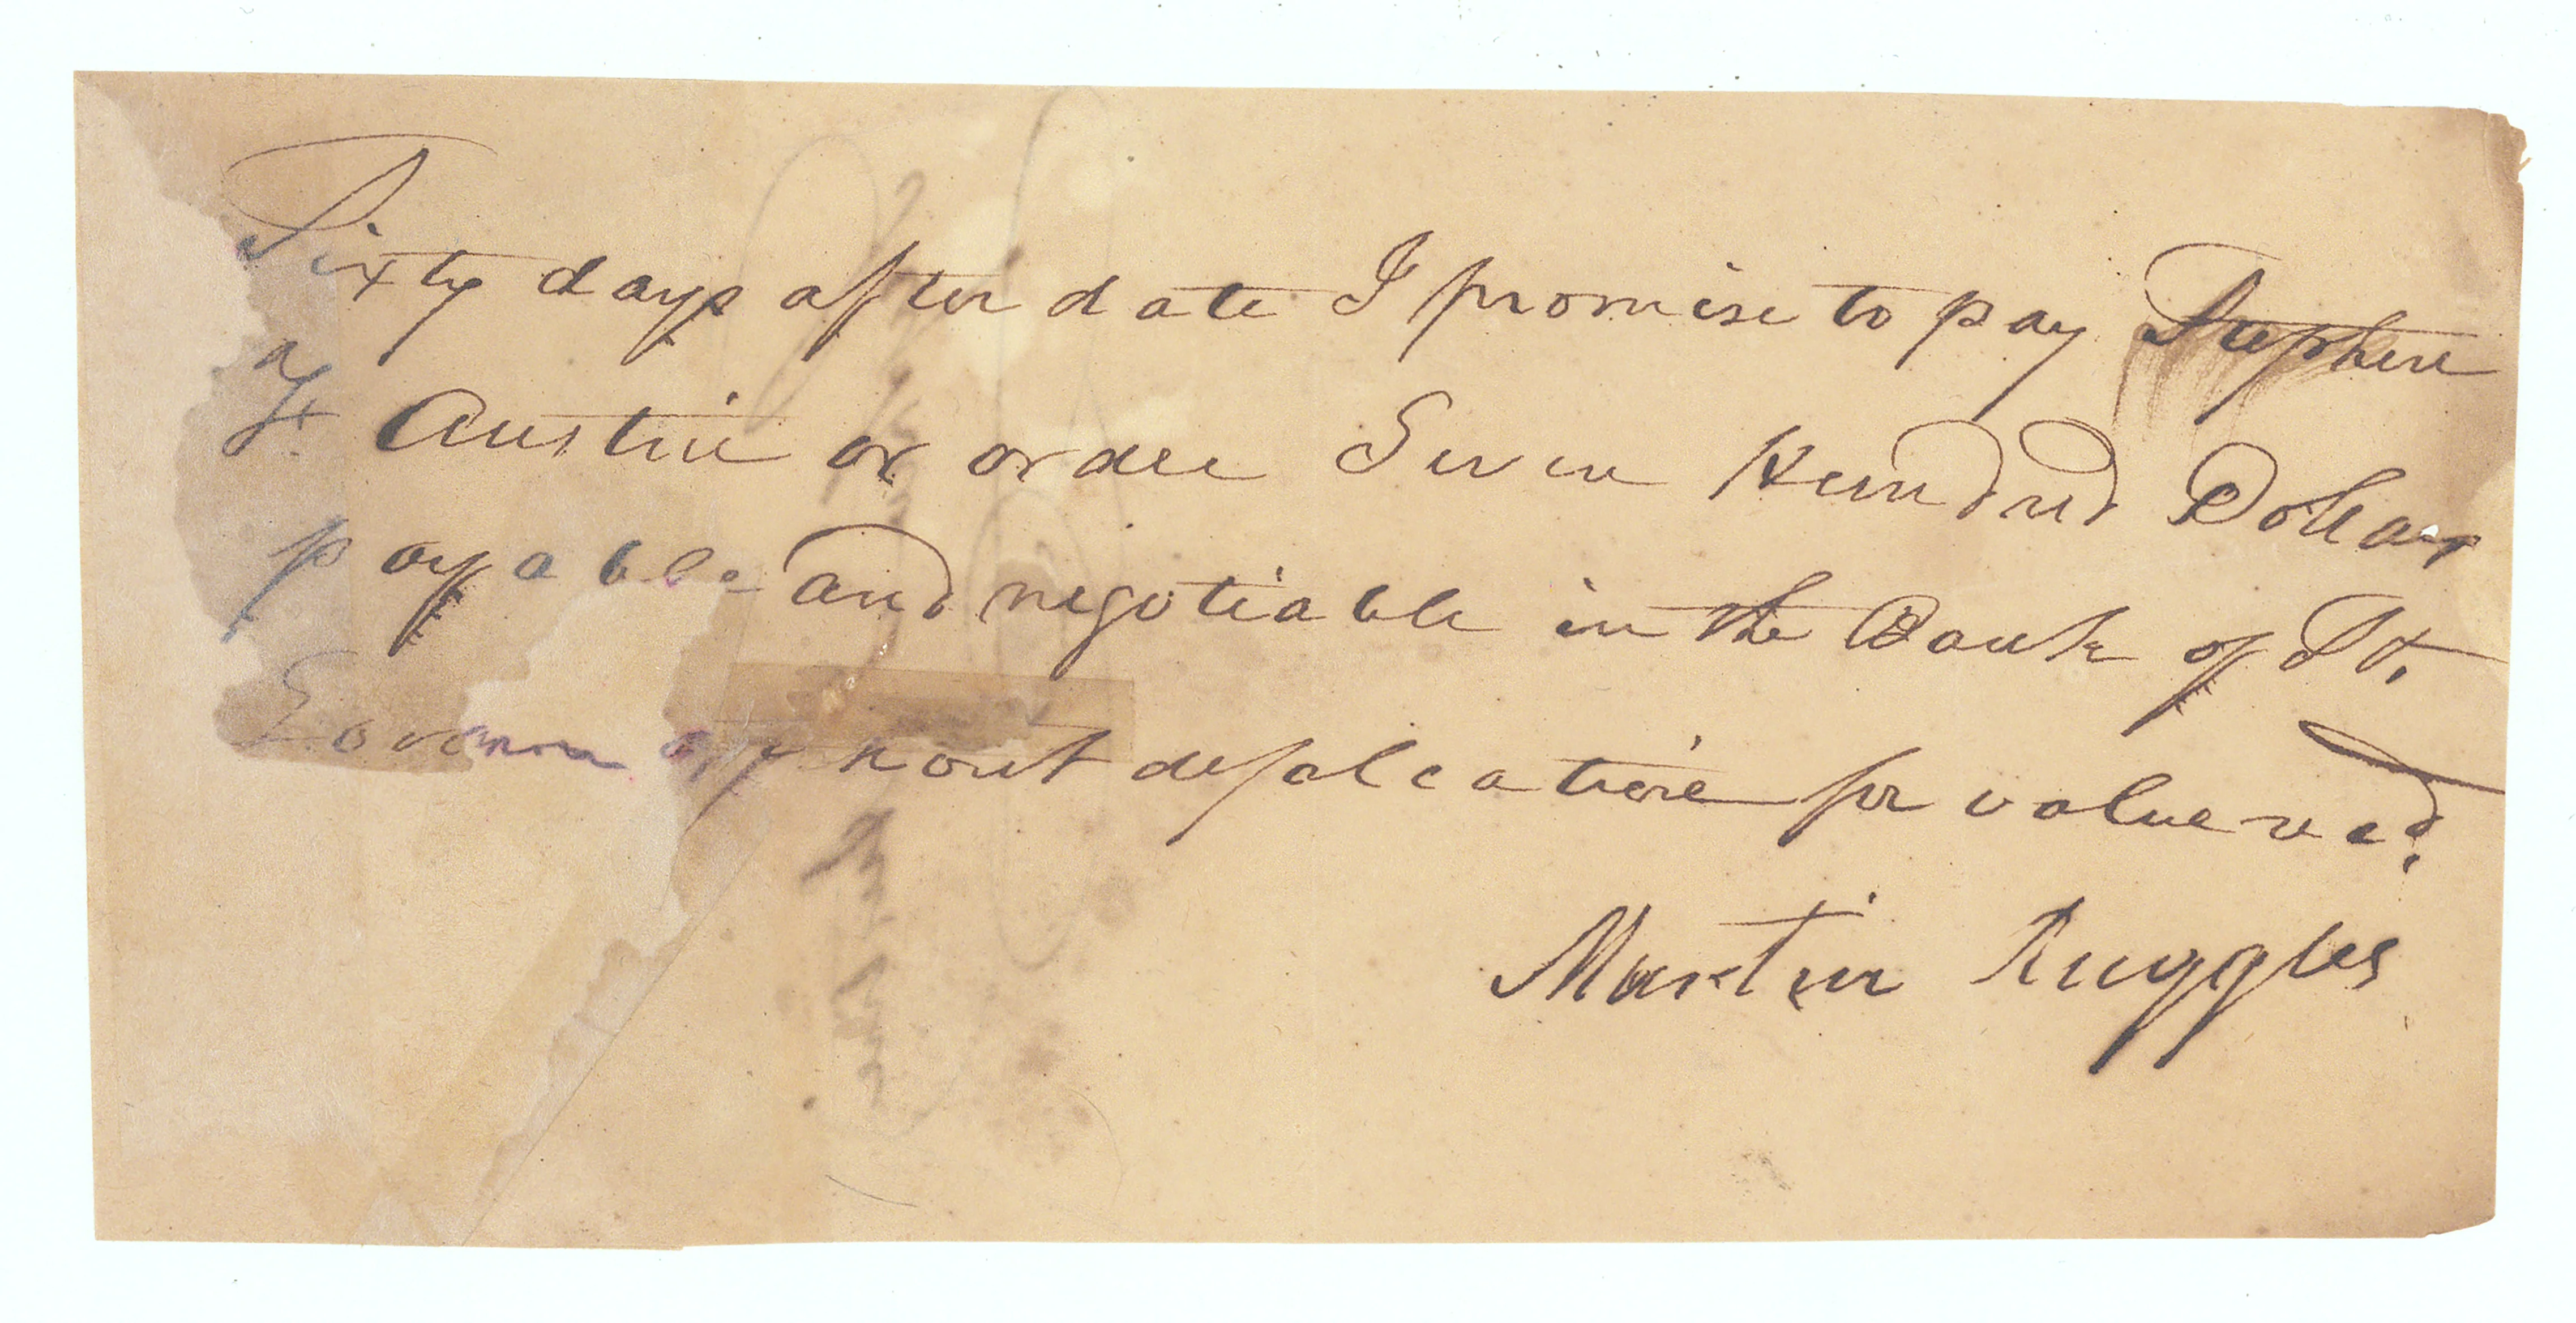 Sixty days after date I promise to pay Stephen
F. Austin or order Seven Hundred Dollars
payable and negotiable in the Bank of St.
out defalcation for value recd.
Martin Ruggles